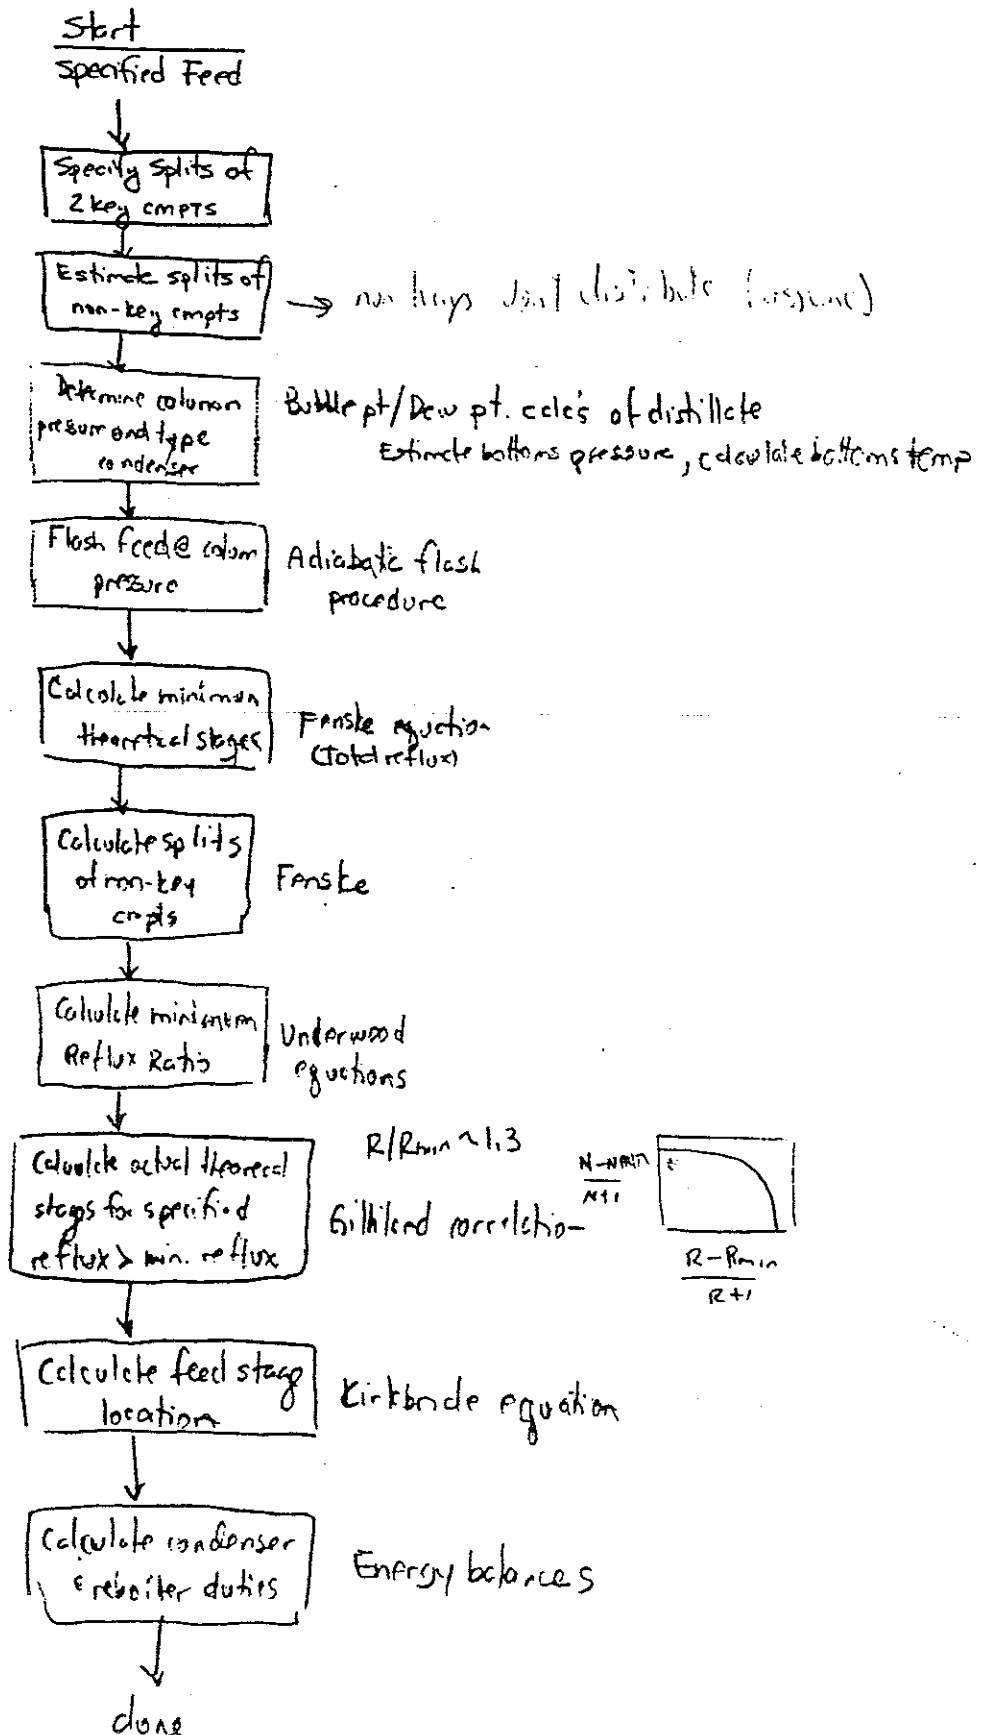 Start
Specified Feed
Specify splits of
2 key cmpts
Estimate splits of
non-key cmpts
non keys don't distribute (assume)
Determine column
pressure and type
condenser
Bubble pt/Dew pt. calc's of distillate
Estimate bottoms pressure, calculate bottoms temp
Flash feed @ colum
pressure
Adiabatic flash
procedure
Calculate minimum
theoretical stages
Fenske equation
(Total reflux)
Calculate splits
of non-key
cmpts
Fenske
Calculate minimum
Reflux Ratio
Underwood
equations
Calculate actual theoretical
stages for specified
reflux > min. reflux
R/Rmin ~ 1.3
Gilliland correlation
N-Nmin
N+1
R-Rmin
R+1
Calculate feed stage
location
Kirkbride equation
Calculate condenser
& reboiler duties
Energy balances
done